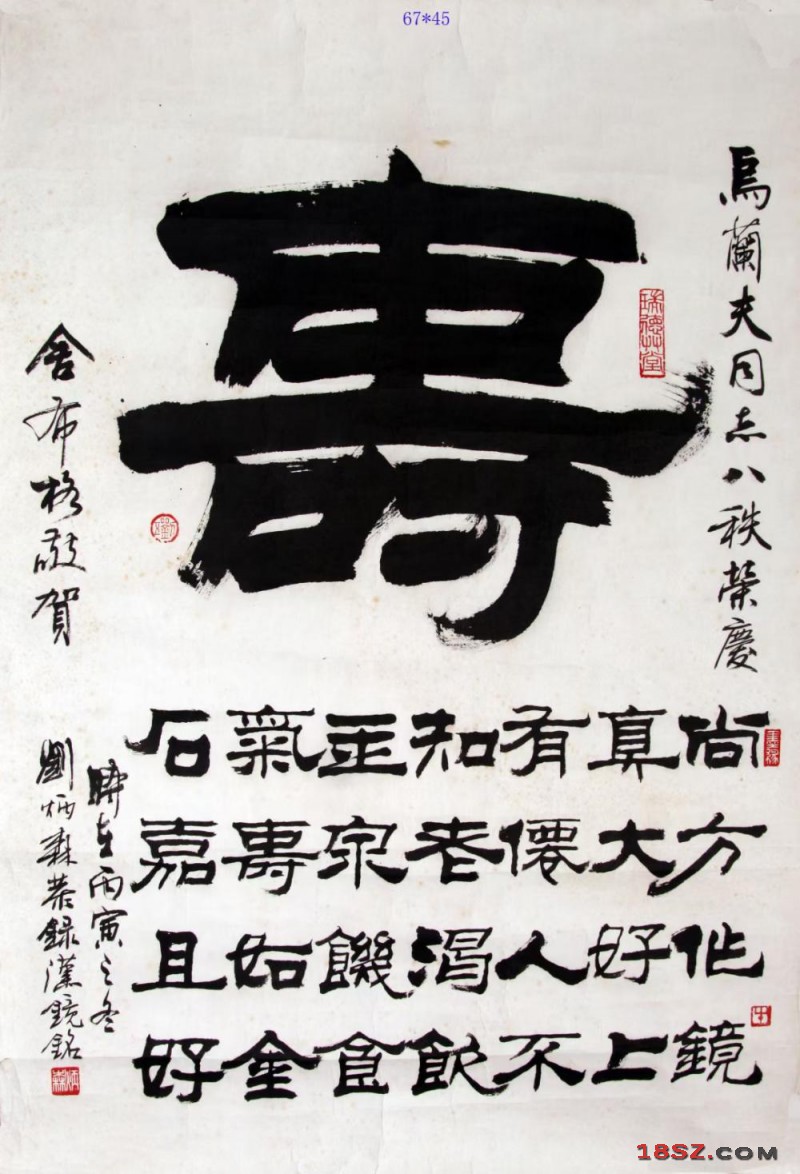 67*45
烏蘭夫同志八秩榮慶
瑞德堂
壽
尚方作鏡
真大好上
有僊人不
知老渴飲
玉泉饑食
氣壽如金
石嘉且好
舍布格敬賀
時在丙寅之冬
劉炳森恭録漢鏡銘
18SZ.COM